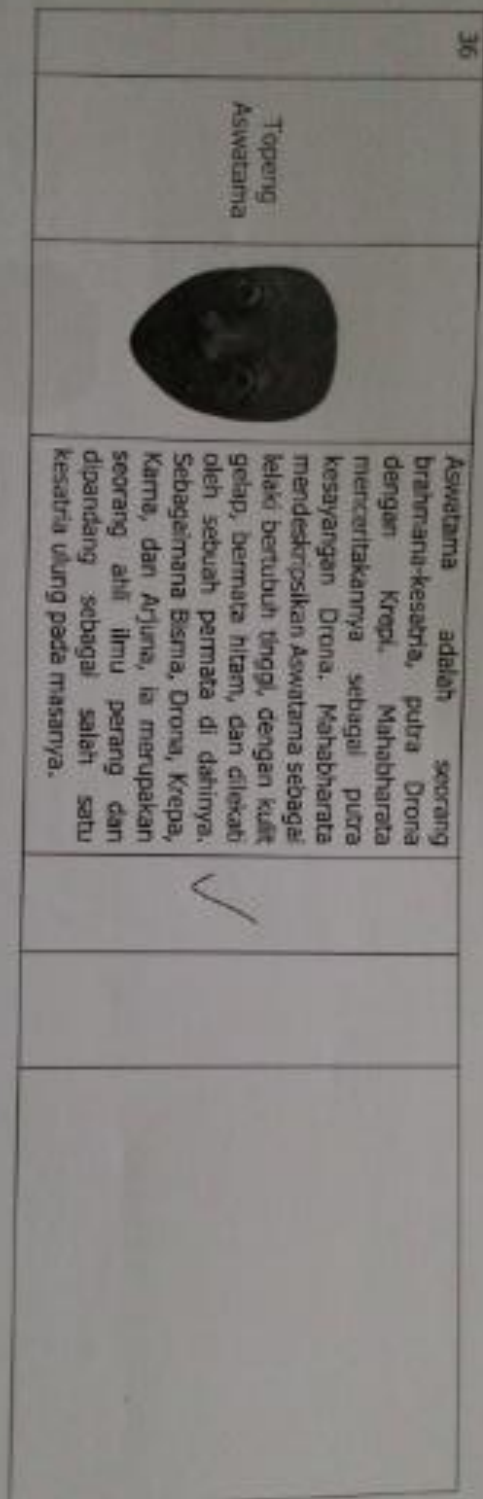 36
Topeng
Aswatama
Aswatama adalah seorang
brahmana-kesatria, putra Drona
dengan Krepi. Mahabharata
menceritakannya sebagai putra
kesayangan Drona. Mahabharata
mendeskripsikan Aswatama sebagai
lelaki bertubuh tinggi, dengan kulit
gelap, bermata hitam, dan dilekati
oleh sebuah permata di dahinya.
Sebagaimana Bisma, Drona, Krepa,
Karna, dan Arjuna, ia merupakan
seorang ahli ilmu perang dan
dipandang sebagai salah satu
kesatria ulung pada masanya.